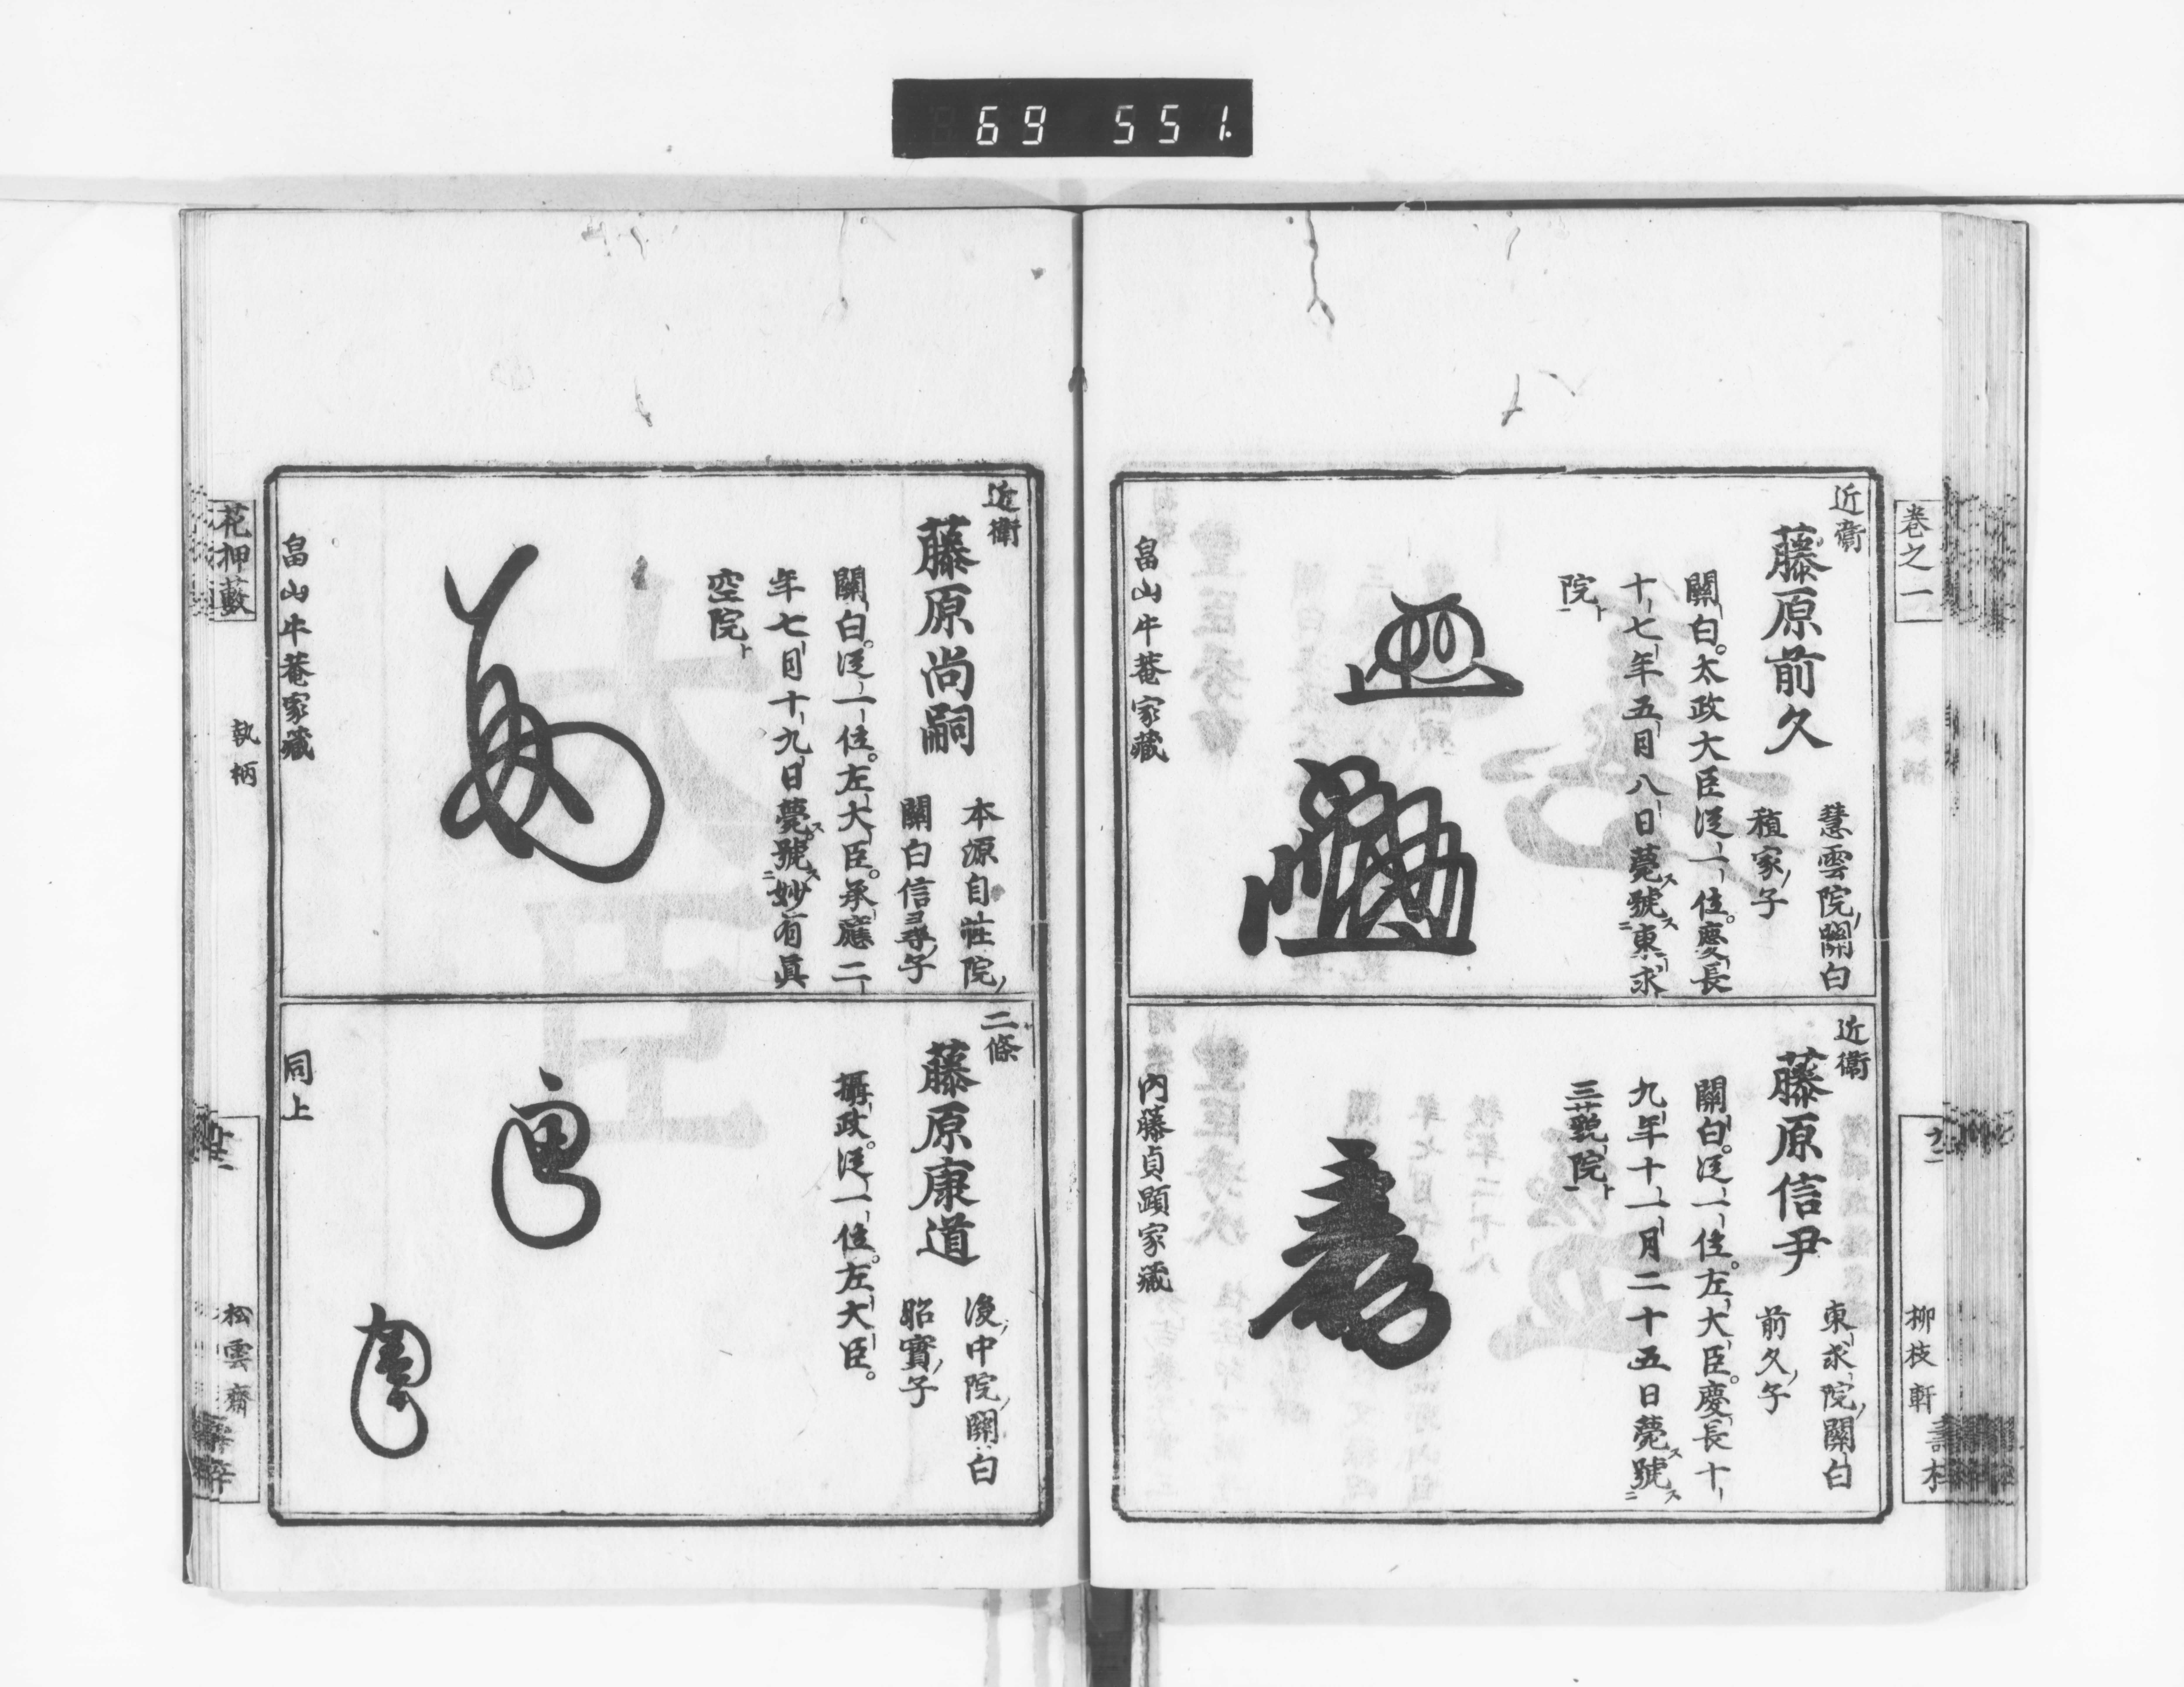 69 551
卷之一
柳枝軒
近衞
藤原前久
慧雲院關白
稙家子
關白。太政大臣從一位。慶長
十七年五月八日薨號東求
院
畠山牛菴家藏
近衞
藤原信尹
東求院關白
前久子
關白。從一位。左大臣。慶長十
九年十一月二十五日薨號
三藐院
内藤貞顕家藏
近衞
藤原尚嗣
本源自性院
關白信尋子
關白。從一位。左大臣。承應二
年七月十九日薨號妙有眞
空院
畠山牛菴家藏
二條
藤原康道
後中院關白
昭實子
攝政。從一位。左大臣。
同上
花押藪
執柄
松雲齋